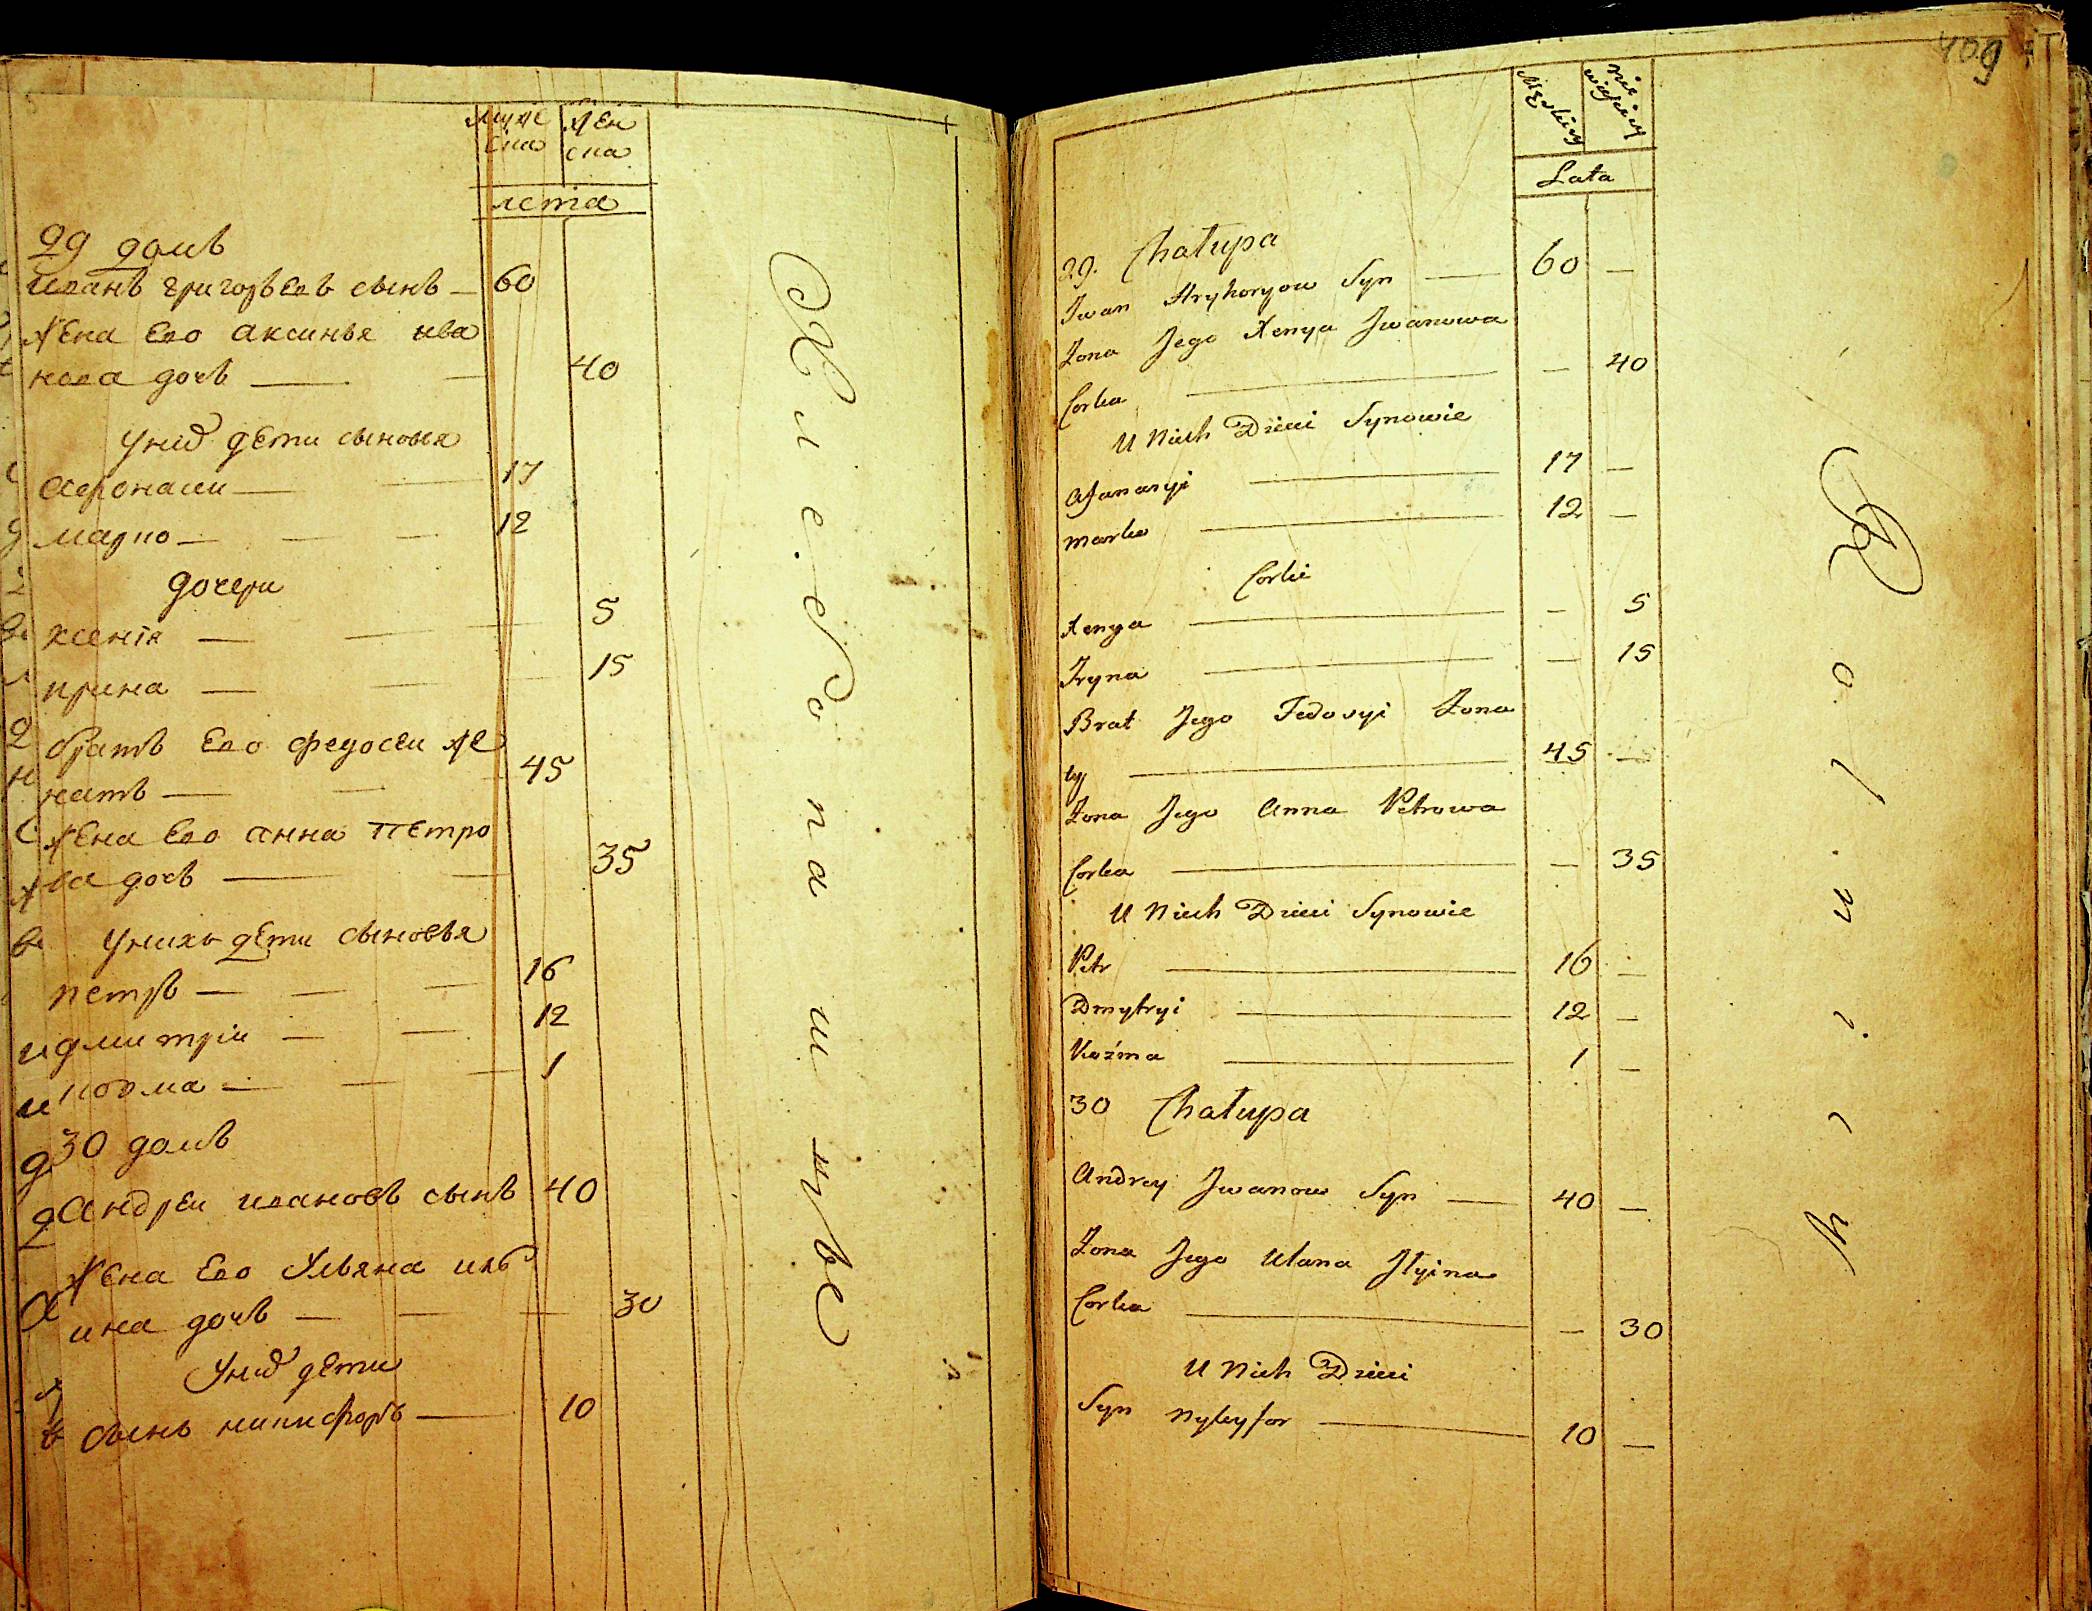 муже
ска
жен
ска
лета
29 домъ
иванъ григорьевъ сынъ — 60
жена ево аксинья ива
нова дочь — 40
У них дети сыновья
Афонасеи — 17
марко — 12
дочери
ксенія — 5
ирина — 15
братъ ево федосеи же
натъ — 45
жена ево анна петро
ва дочь — 35
У нихъ дети сыновья
петръ — 16
дмитріи — 12
козма — 1
30 домъ
Андреи ивановъ сынъ 40
жена ево Ульяна иль
ина дочь — 30
У них дети
сынъ никифоръ — 10
Хлебопашцы
409
Męskiey
nie
wieściey
Lata
29. Chałupa
Iwan Hryhoryow Syn — 60 —
Żona Jego Xenya Iwanowa
Corka — — 40
U Nich Dzieci Synowie
Afanasyi — 17 —
Marko — 12 —
Corki
Xenya — — 5
Iryna — — 15
Brat Jego Fedosyi Żona
ty — 45 —
Żona Jego Anna Petrowa
Corka — — 35
U Nich Dzieci Synowie
Petr — 16 —
Dmytryi — 12 —
Koźma — 1 —
30 Chałupa
Andrey Iwanow Syn — 40 —
Żona Jego Ulana Ilyina
Corka — — 30
U Nich Dzieci
Syn Nykyfor — 10 —
Rolnicy